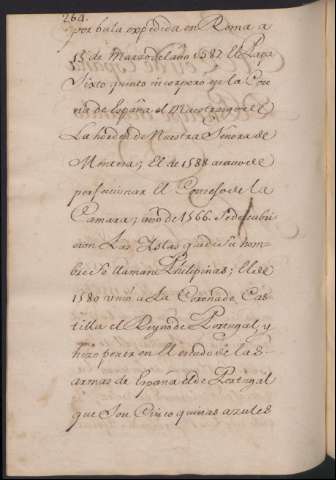 264.
por bula expedida en Roma a
15 de Marzo del año 1587 El Papa
Sixto quinto incorporo en la Coro
na de España el Maestrazgo de
La horden de Nuestra Señora de
Montesa; El de 1588 acavo de
perfeccionar el Consejo de la
Camara; año de 1566 se descubri
eron Las Islas que de su nom
bre se llaman Philipinas; El de
1580 unio a La Corona de Cas
tilla el Reyno de Portugal, y
hizo poner en el escudo de las
armas de España el de Portugal
que son Cinco quinas azules